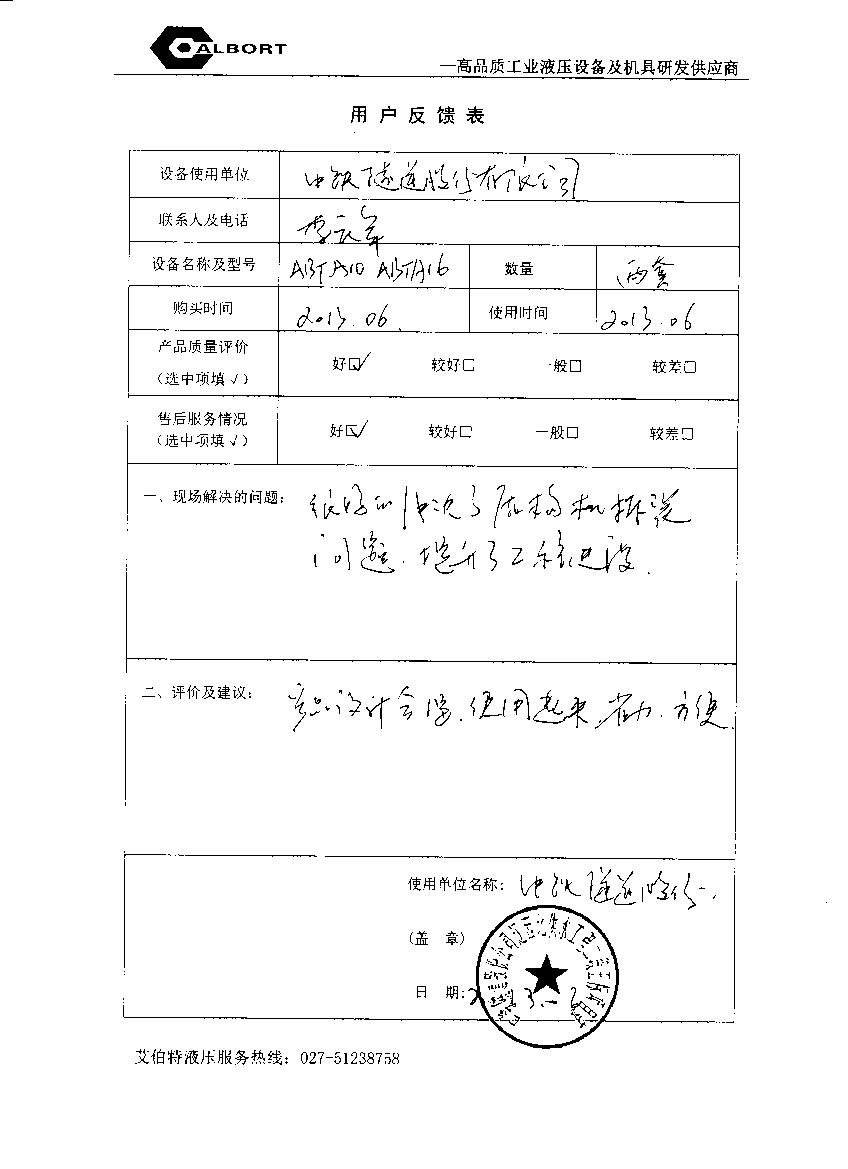 ALBORT
—高品质工业液压设备及机具研发供应商
用户反馈表
设备使用单位 中铁隧道股份有限公司
联系人及电话 李
设备名称及型号 ABTA10 ABTA16 数量 两套
购买时间 2013.06. 使用时间 2013.06
产品质量评价
(选中项填√) 好☑ 较好□ 一般□ 较差□
售后服务情况
(选中项填√) 好☑ 较好□ 一般□ 较差□
一、现场解决的问题: 很好的解决了盾构机拆装
问题.提升了工程进度.
二、评价及建议: 产品设计合理.使用起来.省力.方便
使用单位名称: 中铁隧道股份
(盖 章)
日 期:
艾伯特液压服务热线: 027-51238758